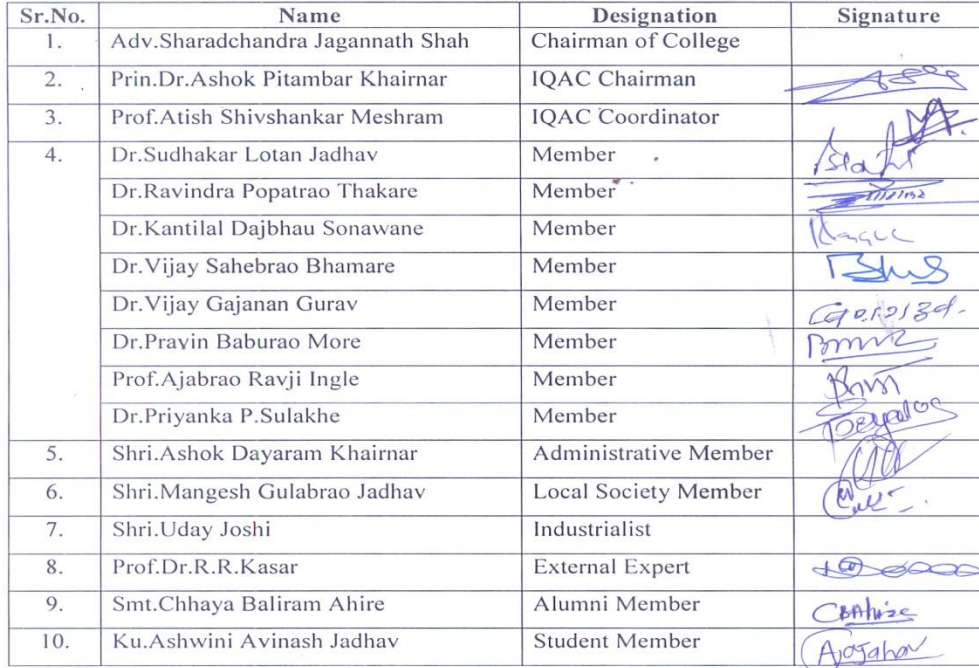 Sr.No. Name Designation Signature
1. Adv.Sharadchandra Jagannath Shah Chairman of College
2. Prin.Dr.Ashok Pitambar Khairnar IQAC Chairman
3. Prof.Atish Shivshankar Meshram IQAC Coordinator
4. Dr.Sudhakar Lotan Jadhav Member
Dr.Ravindra Popatrao Thakare Member
Dr.Kantilal Dajbhau Sonawane Member
Dr.Vijay Sahebrao Bhamare Member
Dr.Vijay Gajanan Gurav Member
Dr.Pravin Baburao More Member
Prof.Ajabrao Ravji Ingle Member
Dr.Priyanka P.Sulakhe Member
5. Shri.Ashok Dayaram Khairnar Administrative Member
6. Shri.Mangesh Gulabrao Jadhav Local Society Member
7. Shri.Uday Joshi Industrialist
8. Prof.Dr.R.R.Kasar External Expert
9. Smt.Chhaya Baliram Ahire Alumni Member CBAhire
10. Ku.Ashwini Avinash Jadhav Student Member